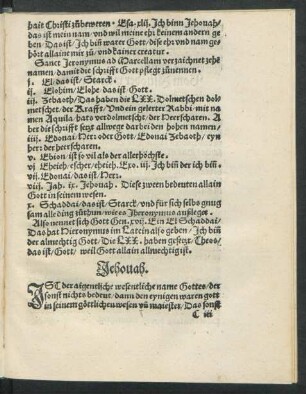 hait Christi zůbeweren · Esa. xlij. Ich binn Jehouah/
das ist mein nam/ vnd wil meine ehr keinem andern ge
ben/ Das ist/ Ich bin warer Gott/ dise ehr vnd nam ge
hört allaint mir zů/ vnd kainer creatur.
Sanct Jeronymus ad Marcellam verzaichnet zehē
namen/ damit die schrifft Gott pflegt zůnennen.
j. El/ das ist/ Starck.
ij. Elohim/ Elohe/ das ist Gott.
iij. Zebaoth/ Das haben die LXX. Dolmetschen dol
metschet/ der Krafft/ Vnd ein gelerter Rabbi/ mit na
men Aquila/ hats verdolmetscht/ der Heerscharen. A
ber die schrifft setzt allwege darbei den hohen namen/
iiij. Edonai/ Herr oder Gott/ Edonai Zebaoth/ eyn
herr der heerscharen.
v. Ebion/ ist so vil als der allerhöchste.
vj Eheieh/ escher/ eheieh. Exo. iij. Ich bin der ich bin.
vij. Edonai/ das ist/ Herr.
viij. Jah. ix. Jehouah. Diese zween bedeuten allain
Gott in seinem wesen.
x. Schaddai/ das ist/ Starck/ vnd für sich selbs gnug
sam alle ding zůthun/ wie es Jheronymus ausleget.
Also nennet sich Gott Gen. xvij. Ein El Schaddai/
Das hat Hieronymus im Lattein also geben/ Ich bin
der almechtig Gott/ Die LXX. haben gesetzt/ Theos/
das ist/ Gott/ weil Gott allain allmechtig ist.
Jehouah.
IST der aigentliche wesentliche name Gottes/ der
sonst nichts bedeut/ dann den eynigen waren gott
in seinem göttlichen wesen vñ maiestet/ Das sonst
C iij